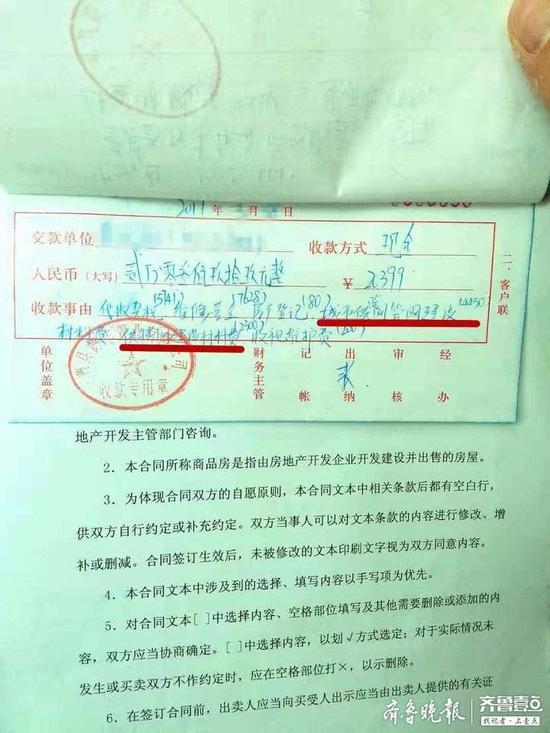 2011
交款单位 收款方式 现金
人民币(大写) 贰万零叁佰玖拾玖元整 ￥ 20399
收款事由 代收契税(5141) 维修基金(7628) 产权登记(80)
收视维护费
单位盖章 财务主管 记帐 出纳 审核 经办
二、客户联
收款专用章
地产开发主管部门咨询。
2. 本合同所称商品房是指由房地产开发企业开发建设并出售的房屋。
3. 为体现合同双方的自愿原则，本合同文本中相关条款后都有空白行，
供双方自行约定或补充约定。双方当事人可以对文本条款的内容进行修改、增
补或删减。合同签订生效后，未被修改的文本印刷文字视为双方同意内容。
4. 本合同文本中涉及到的选择、填写内容以手写项为优先。
5. 对合同文本[ ]中选择内容、空格部位填写及其他需要删除或添加的内
容，双方应当协商确定。[ ]中选择内容，以划√方式选定；对于实际情况未
发生或买卖双方不作约定时，应在空格部位打×，以示删除。
6. 在签订合同前，出卖人应当向买受人出示应当由出卖人提供的有关证
齐鲁晚报 齐鲁壹点
找记者·上壹点